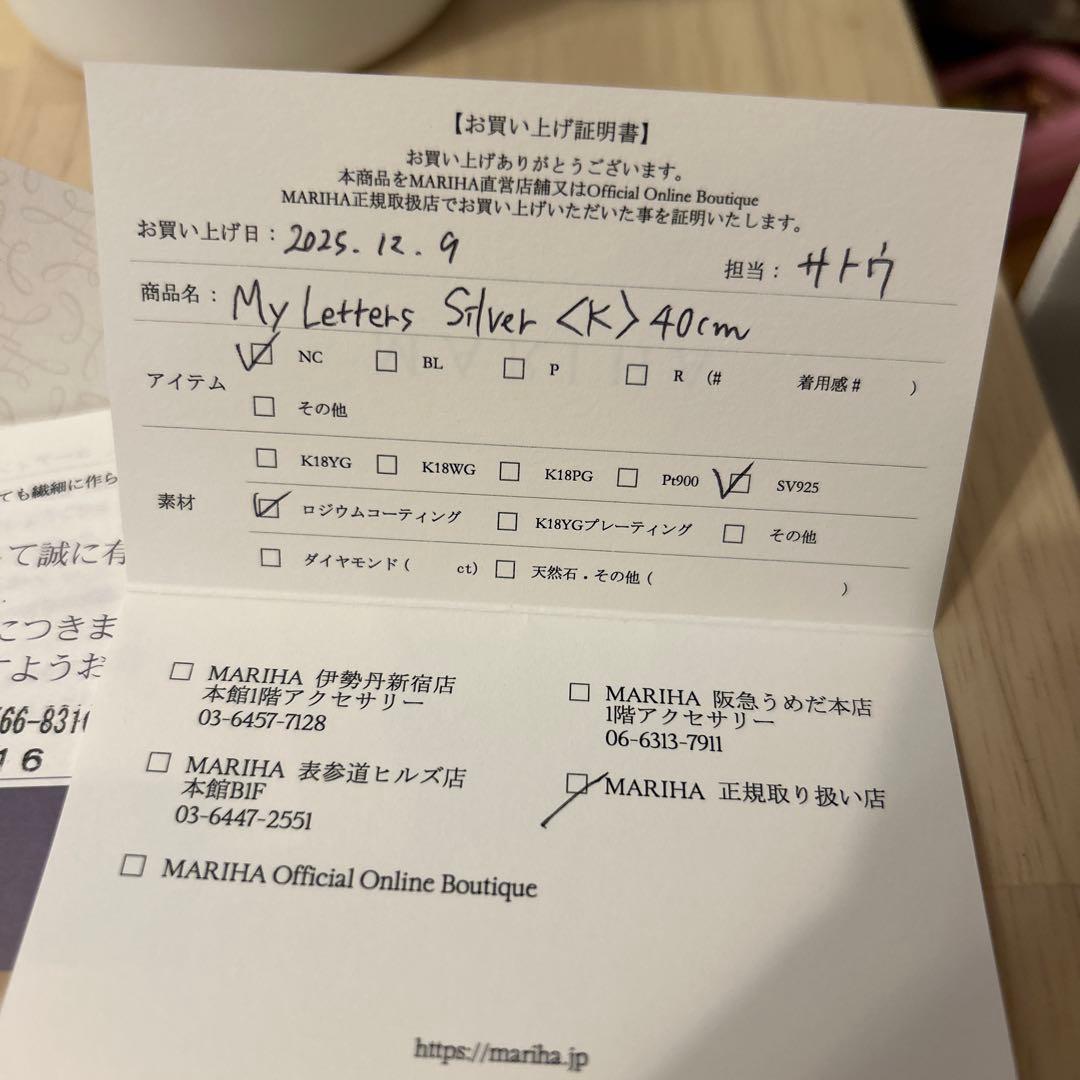 【お買い上げ証明書】
お買い上げありがとうございます。
本商品をMARIHA直営店舗又はOfficial Online Boutique
MARIHA正規取扱店でお買い上げいただいた事を証明いたします。
お買い上げ日：2025.12.9 担当：サトウ
商品名：My Letters Silver <K> 40cm
アイテム
☑ NC □ BL □ P □ R (# 着用感# )
□ その他
素材
□ K18YG □ K18WG □ K18PG □ Pt900 ☑ SV925
☑ ロジウムコーティング □ K18YGプレーティング □ その他
□ ダイヤモンド( ct) □ 天然石・その他( )
□ MARIHA 伊勢丹新宿店
本館1階アクセサリー
03-6457-7128
□ MARIHA 阪急うめだ本店
1階アクセサリー
06-6313-7911
□ MARIHA 表参道ヒルズ店
本館B1F
03-6447-2551
☑ MARIHA 正規取り扱い店
□ MARIHA Official Online Boutique
https://mariha.jp
ても繊細に作ら
て誠に有
につきま
すようお
66-831
16